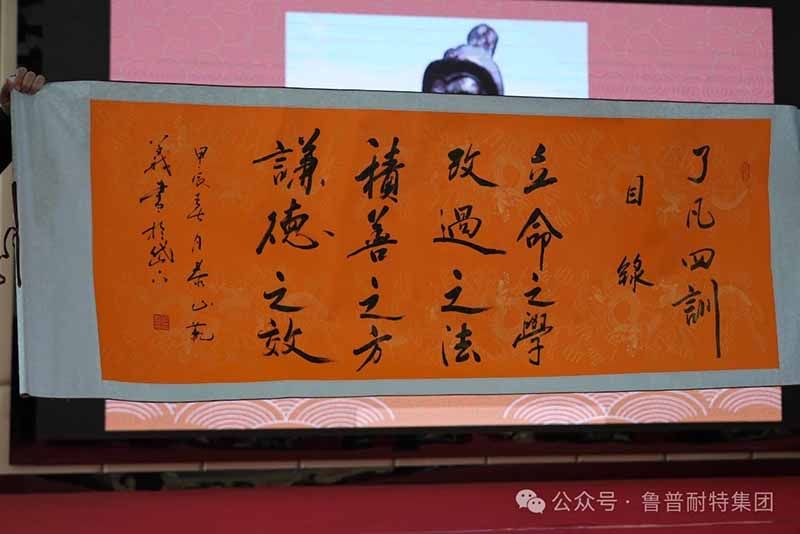 了凡四訓
目錄
立命之學
改過之法
積善之方
謙德之效
甲辰春月泰山苑
義書於岱下
公众号·鲁普耐特集团